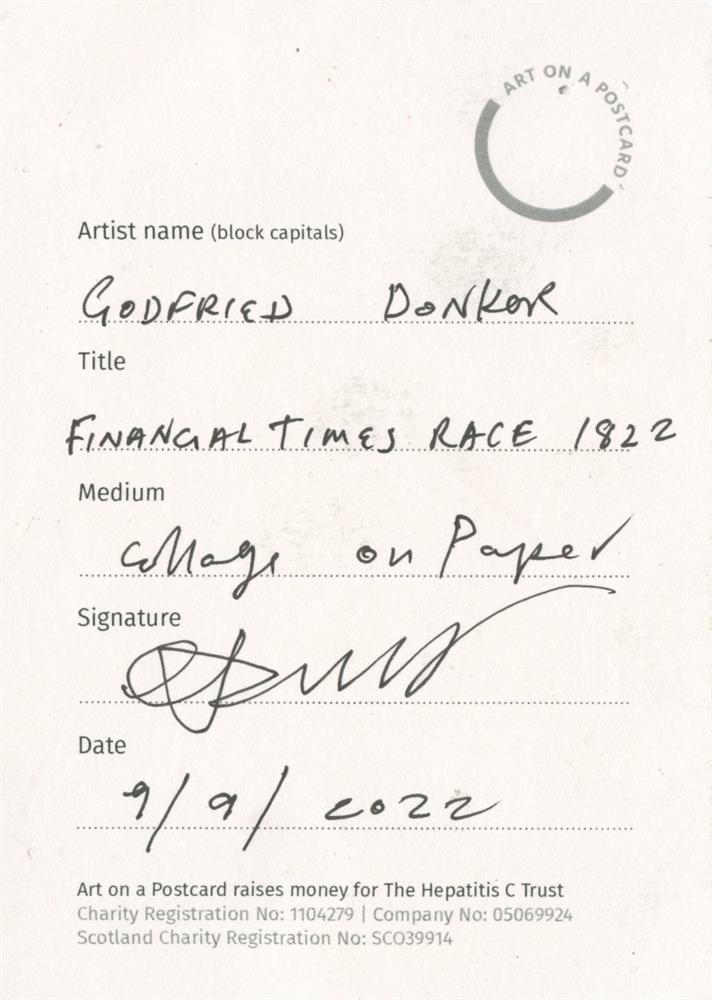 ART ON A POSTCARD
Artist name (block capitals)
GODFRIED DONKOR
Title
FINANCIAL TIMES RACE 1822
Medium
Collage on Paper
Signature
Date
9/9/2022
Art on a Postcard raises money for The Hepatitis C Trust
Charity Registration No: 1104279 | Company No: 05069924
Scotland Charity Registration No: SCO39914